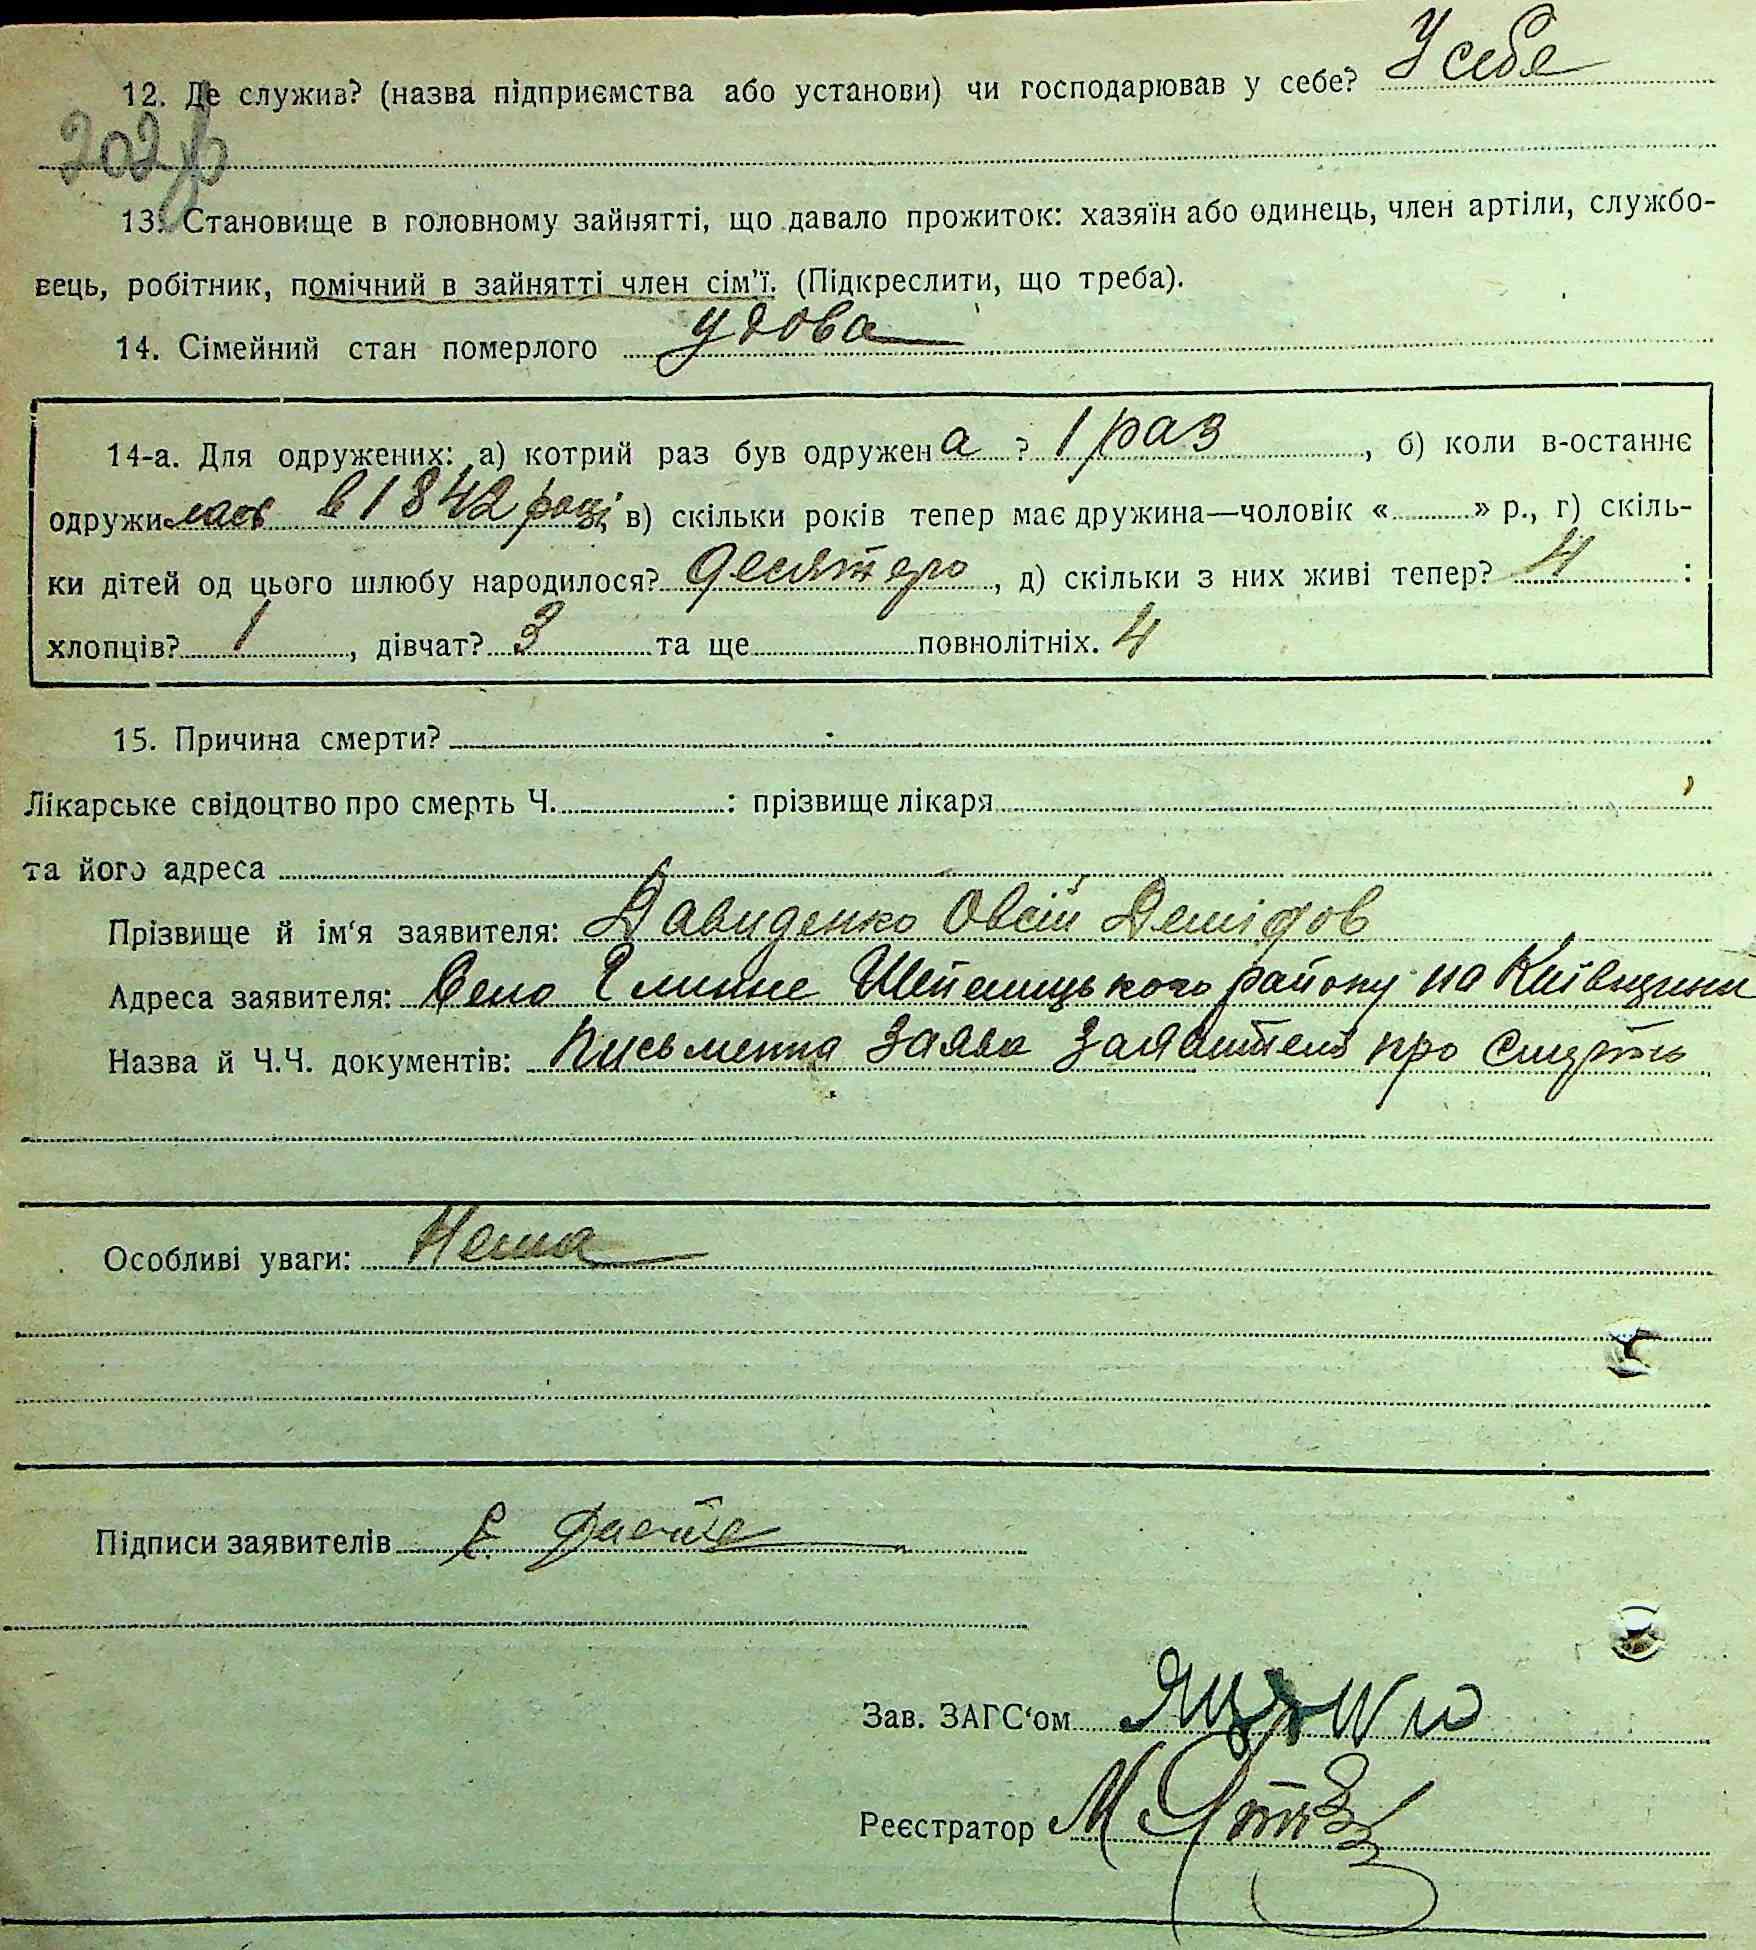 12. Де служив? (назва підприємства або установи) чи господарював у себе? У себе
202
13. Становище в головному зайнятті, що давало прожиток: хазяїн або одинець, член артіли, службо-
вець, робітник, помічний в зайнятті член сім'ї. (Підкреслити, що треба).
14. Сімейний стан померлого удова
14-а. Для одружених: а) котрий раз був одружена? 1 раз, б) коли в-останнє
одружилась в 1842 році в) скільки років тепер має дружина—чоловік «» р., г) скіль-
ки дітей од цього шлюбу народилося? десятеро, д) скільки з них живі тепер? 4 :
хлопців? 1, дівчат? 3 та ще повнолітніх. 4
15. Причина смерти?
Лікарське свідоцтво про смерть Ч. : прізвище лікаря
та його адреса
Прізвище й ім'я заявителя: Давиденко Овсій Демідов
Адреса заявителя: Село Глинне Шепелицького району на Київщині
Назва й Ч.Ч. документів: Письменна заява заявителя про смерть
Особливі уваги: Нема
Підписи заявителів
Зав. ЗАГС'ом
Реєстратор М